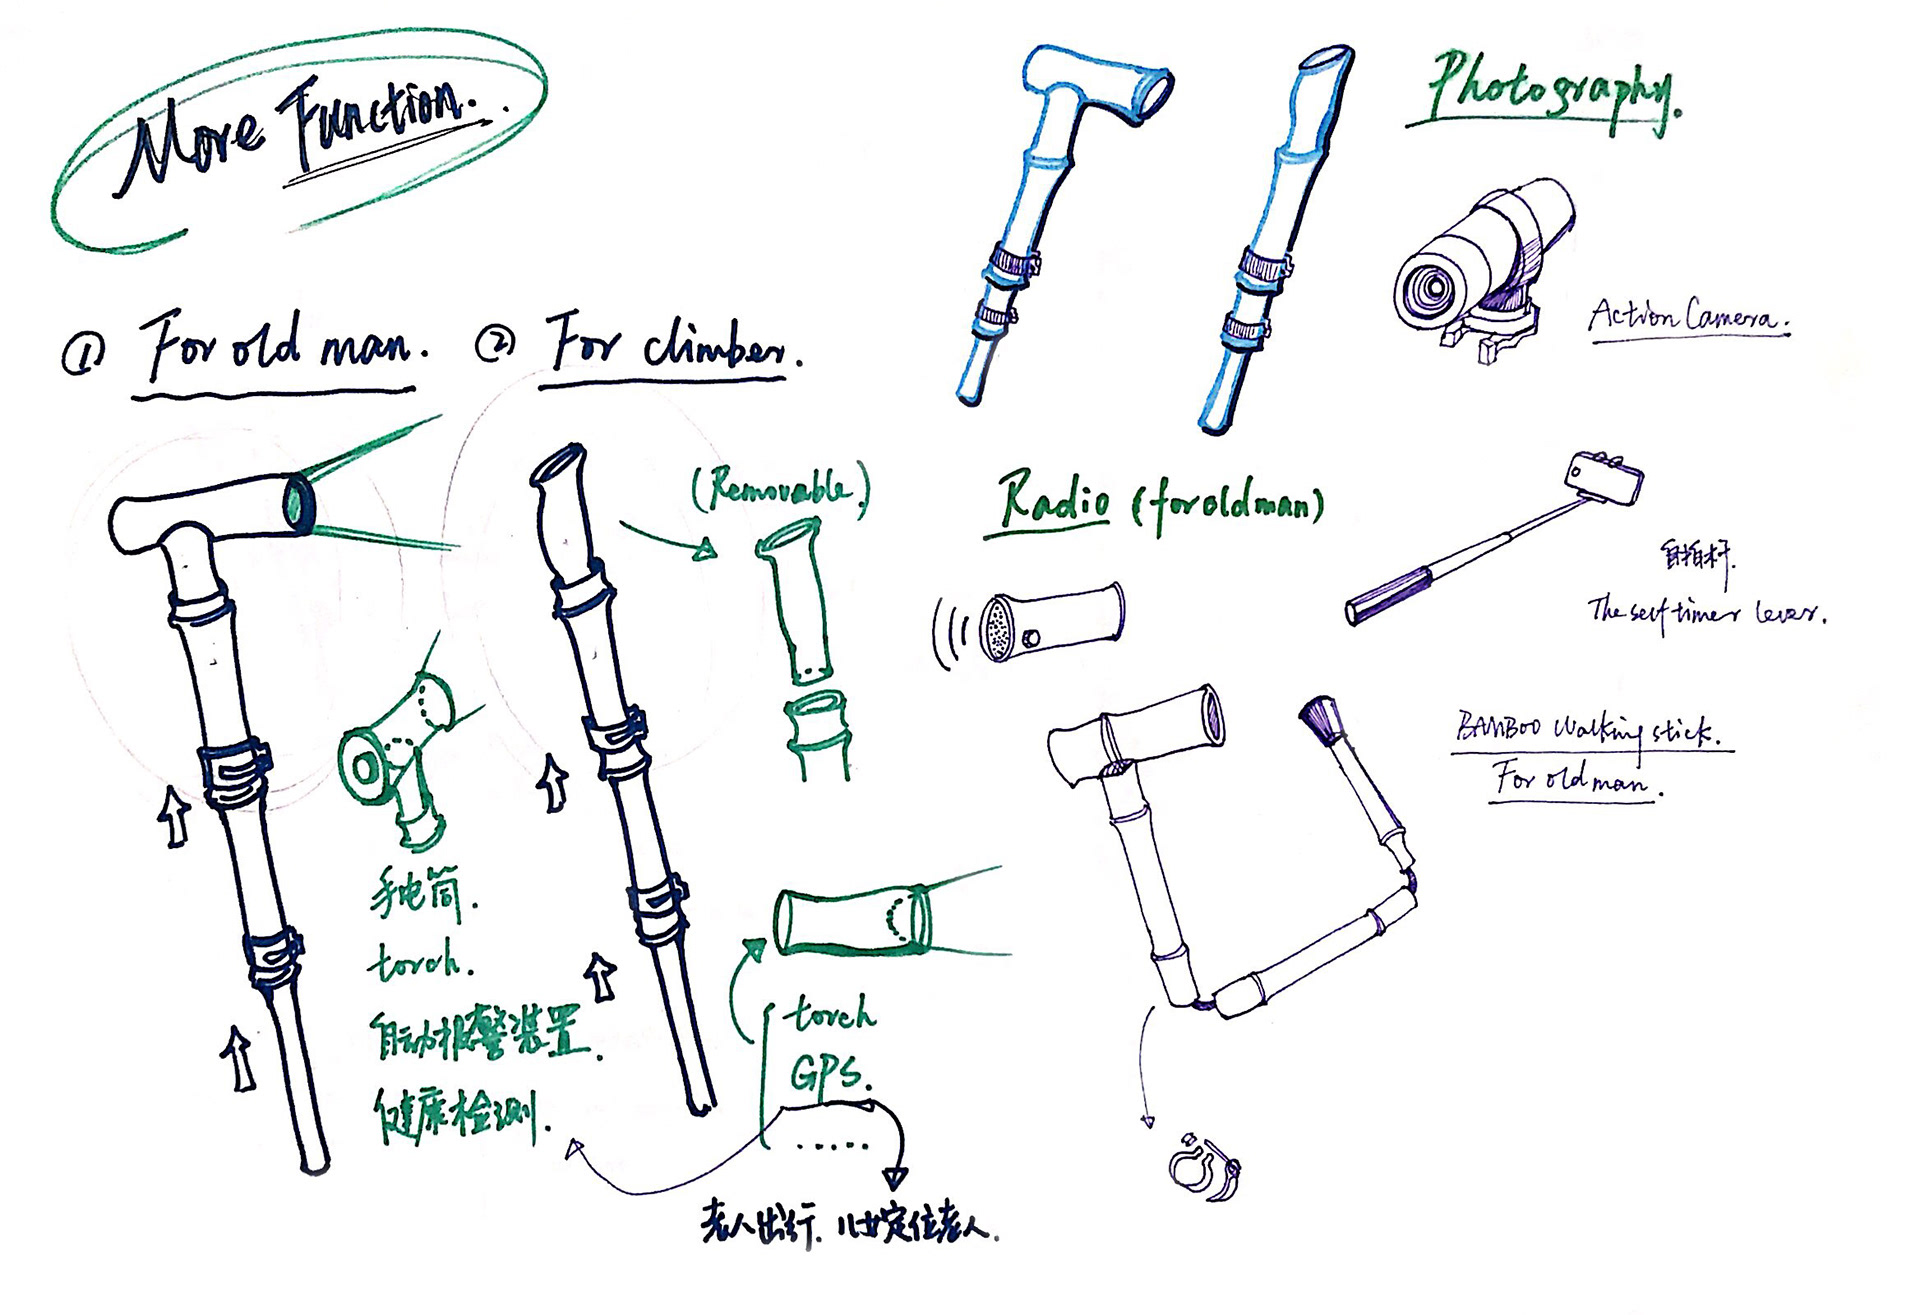 More Function..
① For old man.
② For climber.
(Removable.)
手电筒.
torch.
自动报警装置.
健康检测.
torch
GPS.
......
老人出行. 儿女定位老人.
Photography.
Action Camera.
Radio (for old man)
自拍杆.
The self timer lever.
BAMBOO walking stick.
For old man.